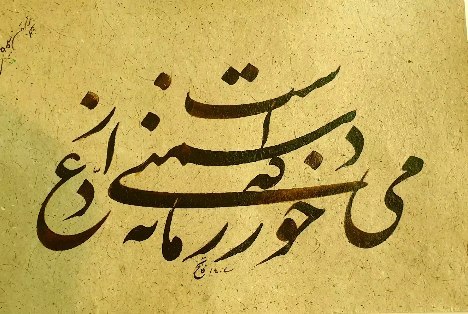 می خور که زمانه دشمنی غدار است